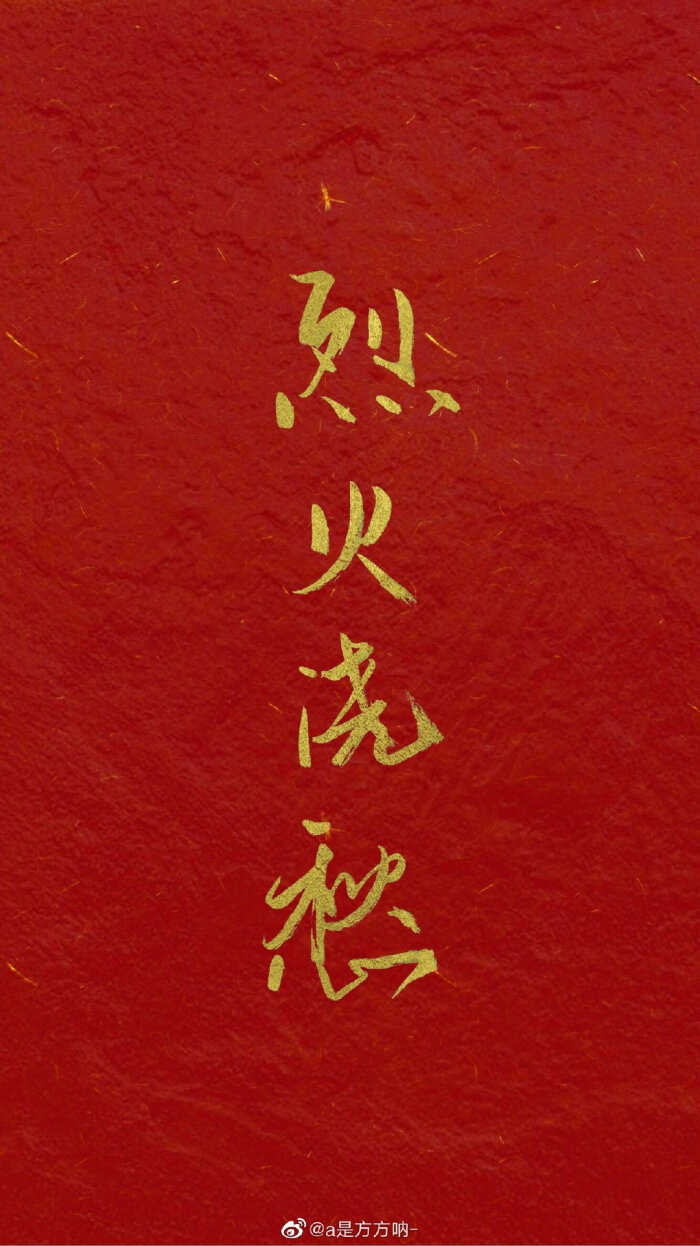 烈火浇愁
@a是方方呐-